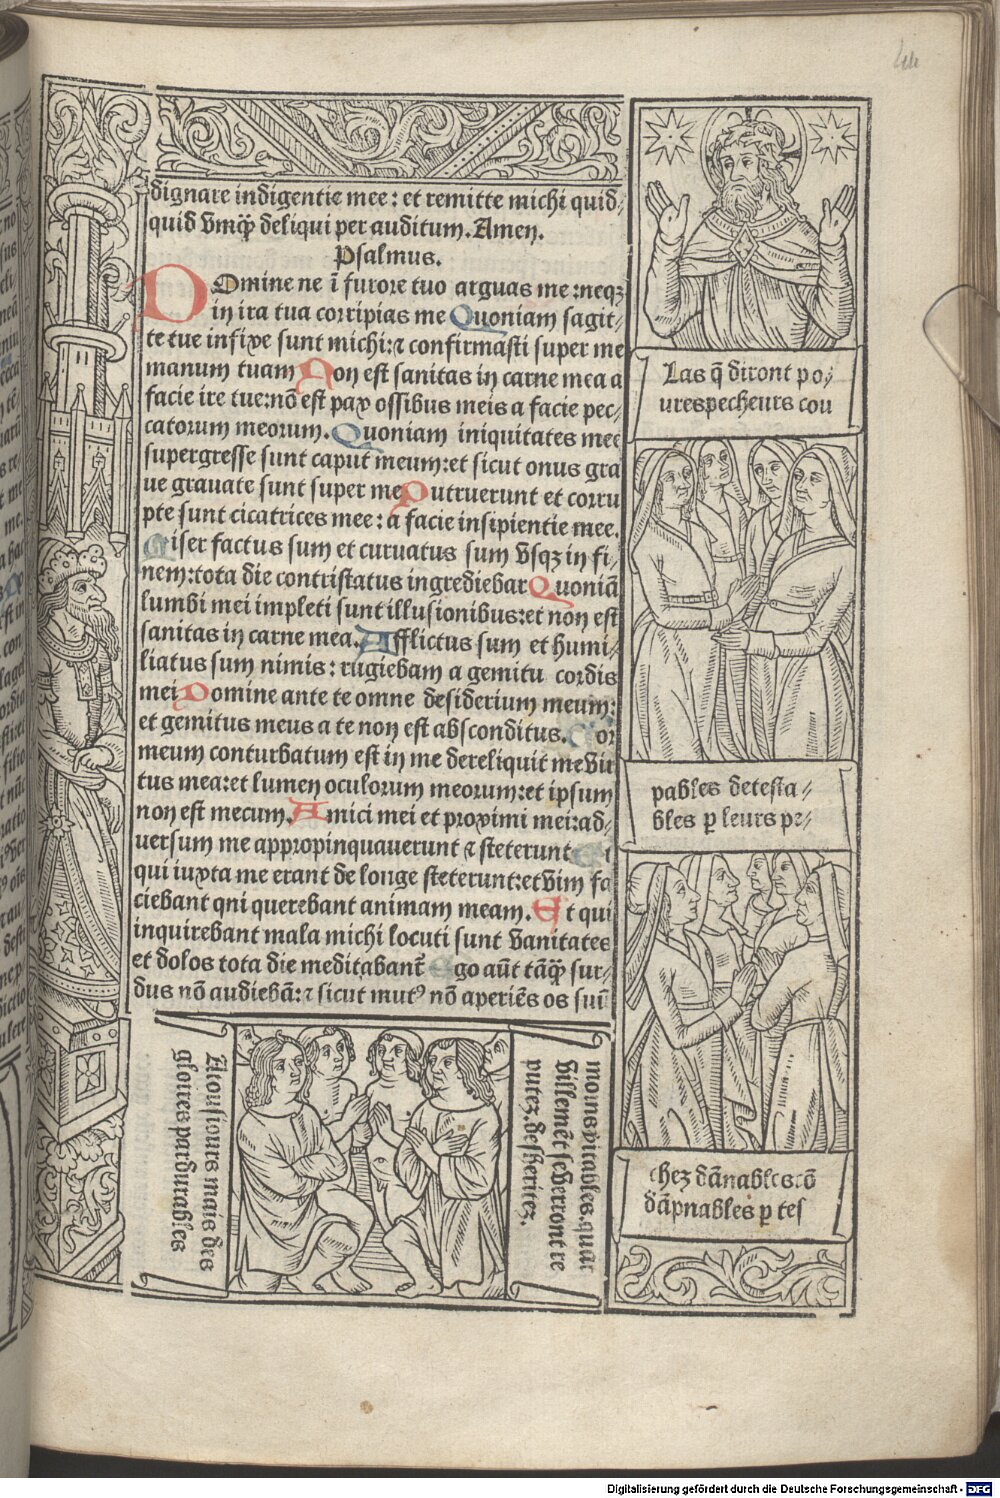 dignare indigentie mee: et remitte michi quid-
quid vmq̃ deliqui per auditum. Amen.
Psalmus.
Domine ne ĩ furore tuo arguas me: neqꝫ
in ira tua corripias me Quoniam sagit-
te tue infixe sunt michi: ⁊ confirmasti super me
manum tuam Non est sanitas in carne mea a
facie ire tue: nõ est pax ossibus meis a facie pec-
catorum meorum. Quoniam iniquitates mee
supergresse sunt caput meum: et sicut onus gra
ue grauate sunt super me Putruerunt et corru
pte sunt cicatrices mee: a facie insipientie mee.
Miser factus sum et curuatus sum vsqꝫ in fi-
nem: tota die contristatus ingrediebar Quoniã
lumbi mei impleti sunt illusionibus: et non est
sanitas in carne mea. Afflictus sum et humi-
liatus sum nimis: rugiebam a gemitu cordis
mei Domine ante te omne desiderium meum:
et gemitus meus a te non est absconditus. Cor
meum conturbatum est in me dereliquit me vir
tus mea: et lumen oculorum meorum: et ipsum
non est mecum. Amici mei et proximi mei: ad-
uersum me appropinquauerunt ⁊ steterunt Et
qui iuxta me erant de longe steterunt: et vim fa
ciebant qni querebant animam meam. Et qui
inquirebant mala michi locuti sunt vanitates
et dolos tota die meditabant̃ Ego aũt tãq̃ sur-
dus nõ audiebã: ⁊ sicut mutꝰ nõ aperiẽs os suũ
Las q̃ diront po-
urespecheurs cou
pables detesta-
bles p leurs pe-
chez dãnables cõ
dãpnables p tes
moins pitables. quãt
villemẽt se verront re
putez. desheritez.
A tousiours mais des
gloires pardurables
Digitalisierung gefördert durch die Deutsche Forschungsgemeinschaft - DFG